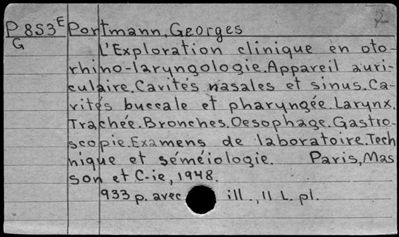 P853E Portmann, Georges
G
L'Exploration clinique en oto-
rhino-laryngologie. Appareil auri-
culaire. Cavités nasales et sinus. Ca-
vités buccale et pharyngée. Larynx.
Trachée. Bronches. Oesophage. Gastro-
scopie. Examens de laboratoire. Tech
nique et séméiologie. Paris, Mas
son et C-ie, 1948.
933 p. avec ill., 11 L. pl.